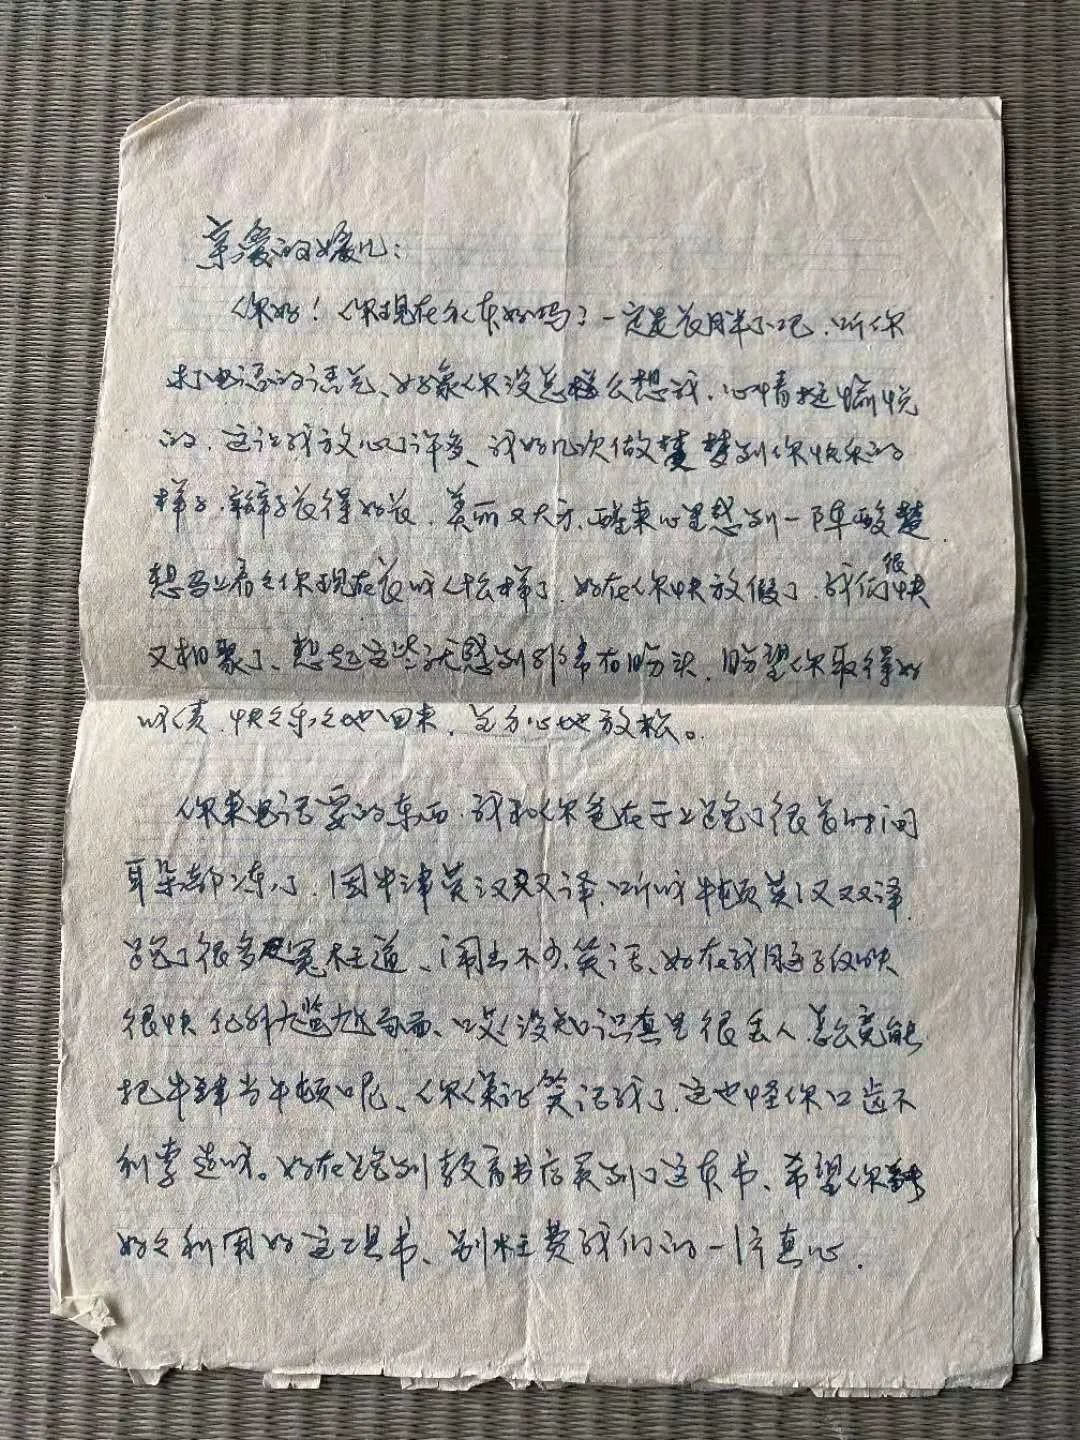 亲爱的媛儿：
你好！你现在北京好吗？一定是长胖了吧，听你
打电话的语气、好象你没怎样么想我，心情挺愉悦
的，这让我放心了许多、我好几次做梦梦到你快乐的
样子，辫子长得好长，美丽又大方，醒来心里感到一阵酸楚，
想马上看看你现在长成什么样了，好在你快放假了，我们很快
又相聚了、想起这些就感到非常有盼头，盼望你取得好
成绩，快快乐乐地回来，全身心地放松。
你来电话要的东西，我和你爸在街上跑了很长时间
耳朵都冻了，因牛津英汉双译，听成牛顿英汉双译，
跑了很多冤枉道、闹出不少笑话、好在我脑子反映
很快化外尴尬局面、哎没知识真是很丢人，怎么竟能
把牛津当牛顿呢、你保证笑话我了，这也怪你口齿不
利索造成。好在跑到教育书店买到了这本书、希望你能
好好利用好这工具书、别枉费我们的一片真心。